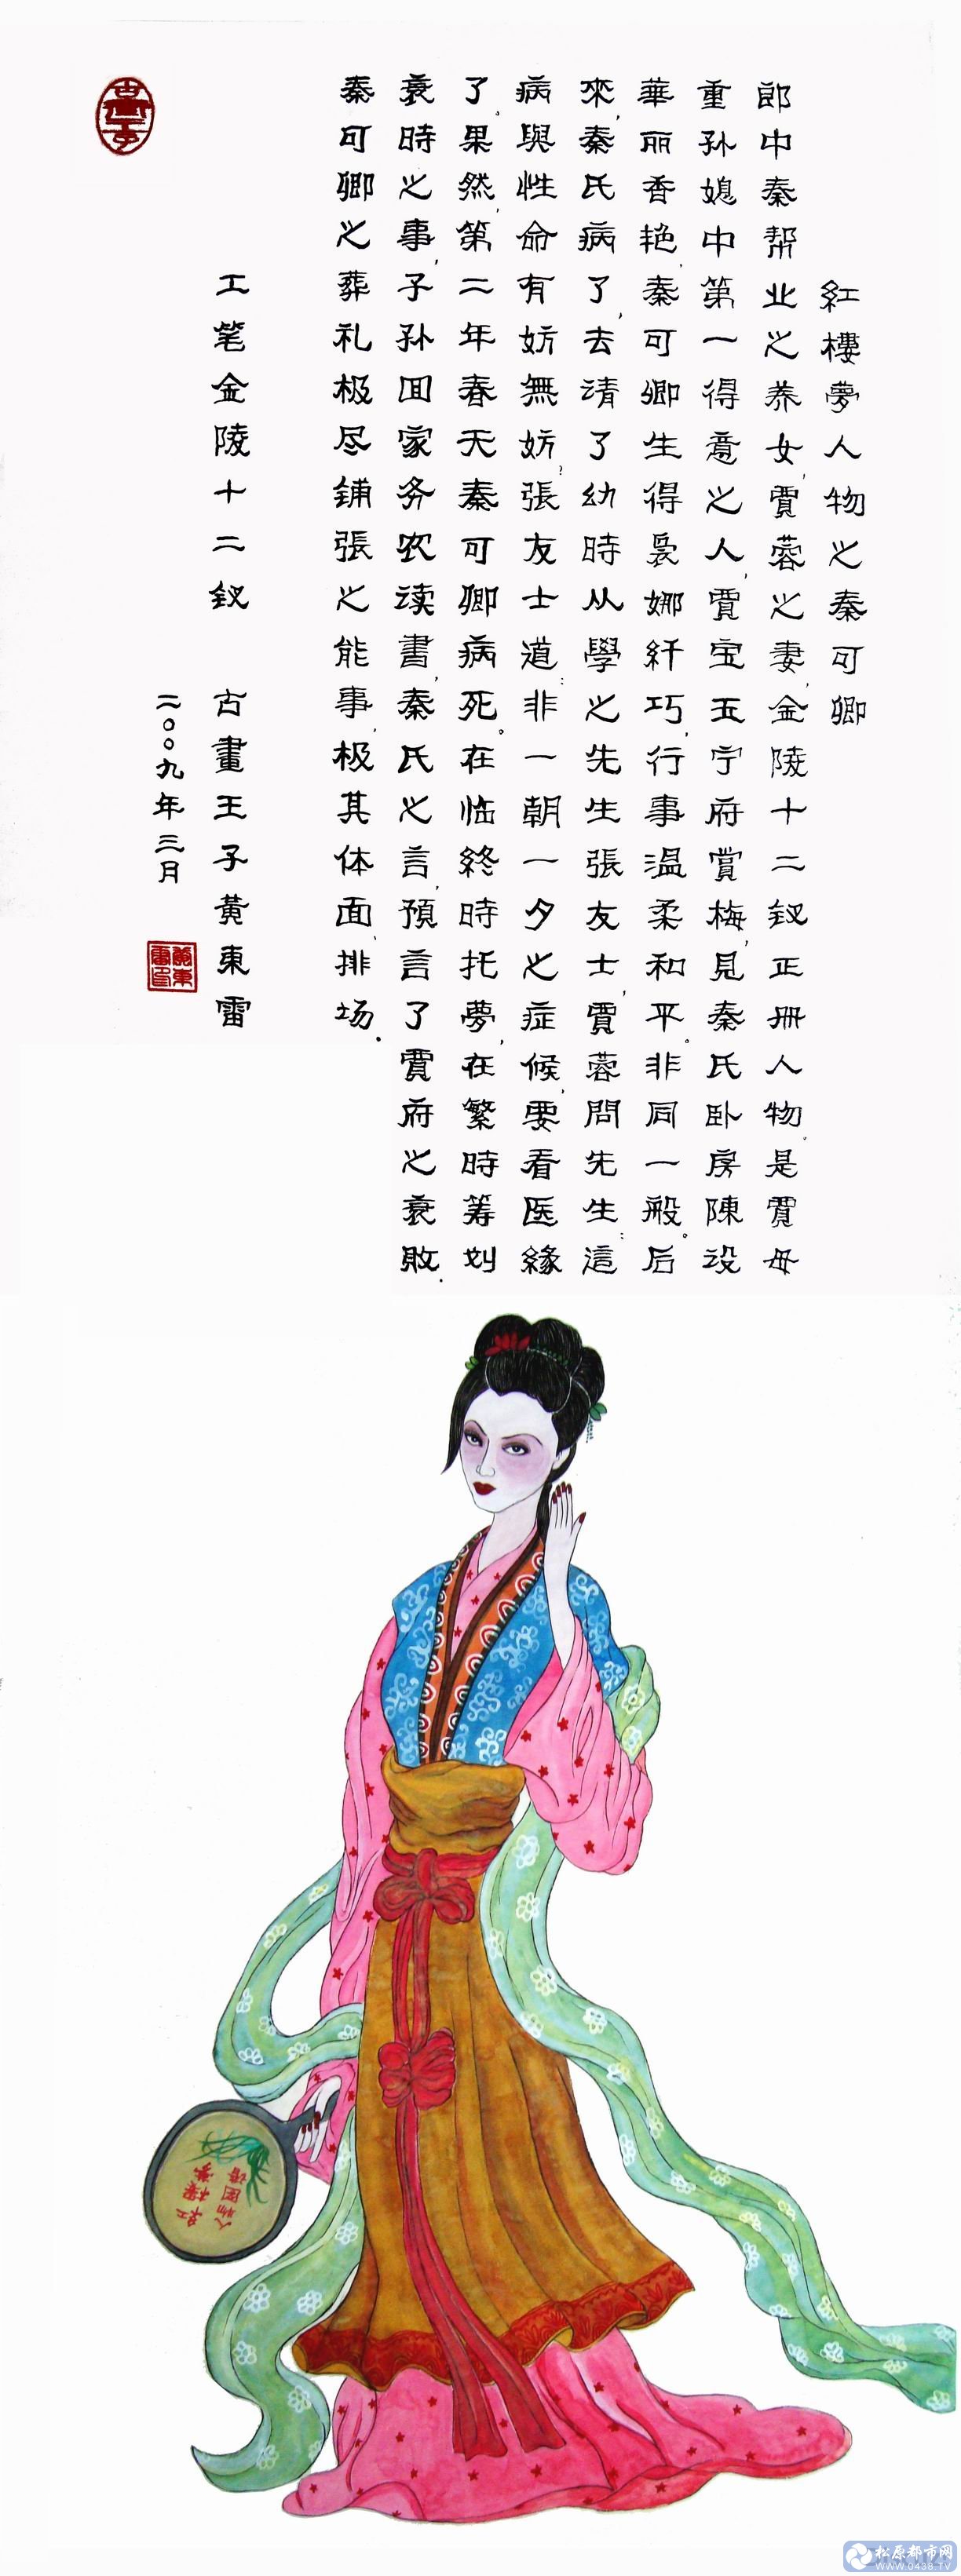 紅樓夢人物之秦可卿
郎中秦帮业之养女,賈蓉之妻,金陵十二钗正册人物。是賈母
重孙媳中第一得意之人,賈宝玉宁府賞梅,見秦氏卧房陳设
華丽香艳,秦可卿生得裊娜纤巧,行事温柔和平。非同一般。后
來,秦氏病了,去請了幼時从學之先生張友士,賈蓉問先生:這
病與性命有妨無妨?張友士道:非一朝一夕之症候,要看医緣
了。果然,第二年春天秦可卿病死。在临終時托夢,在繁時筹划
衰時之事,子孙回家务农读書,秦氏之言,預言了賈府之衰敗.
秦可卿之葬礼极尽鋪張之能事,极其体面、排场.
工笔金陵十二钗 古畫王子黄東雷
二〇〇九年三月
黄東雷印
紅樓夢
人物图谱
松原都市网
WWW.0438.TV